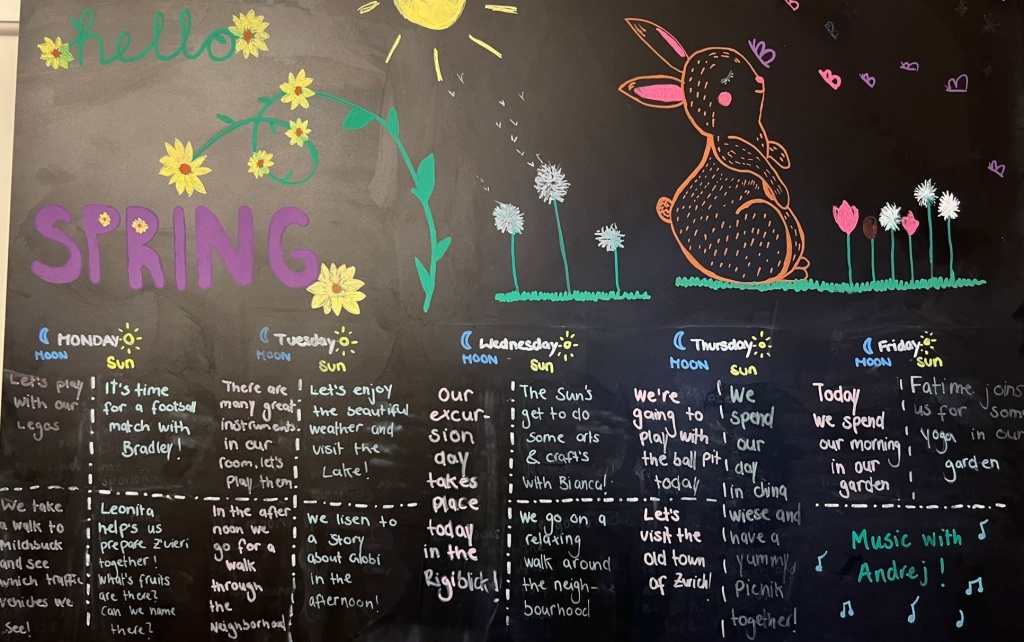 hello
SPRING
MONDAY
MOON
Sun
Let's play
with our
Legos
It's time
for a football
match with
Bradley!
We take
a walk to
Milchbuck
and see
which traffic
vehicles we
see!
Leonita
help's us
prepare Zvieri
together!
What's fruits
are there?
Can we name
there?
Tuesday
MOON
Sun
There are
many great
instruments
in our
room, let's
Play them
Let's enjoy
the beautiful
weather and
visit the
Lake!
In the after
noon we
go for a
walk
through
the
Neighborhood
we lisen to
a story
about Globi
in the
afternoon!
Wednesday
MOON
Sun
our
excur-
sion
day
takes
place
today
in the
Rigiblick!
The Sun's
get to do
some arts
& craft's
with Bianca!
we go on a
relaxing
walk around
the neigh-
bourhood
Thursday
MOON
Sun
we're
going to
play with
the ball pit
today
Let's
visit the
old town
of Zürich!
we
spend
our
day
in china
wiese and
have a
yummy
Picnik
together!
Friday
MOON
Sun
Today
we spend
our morning
in our
garden
Fatime joins
us for some
yoga in our
garden
Music with
Andrej!